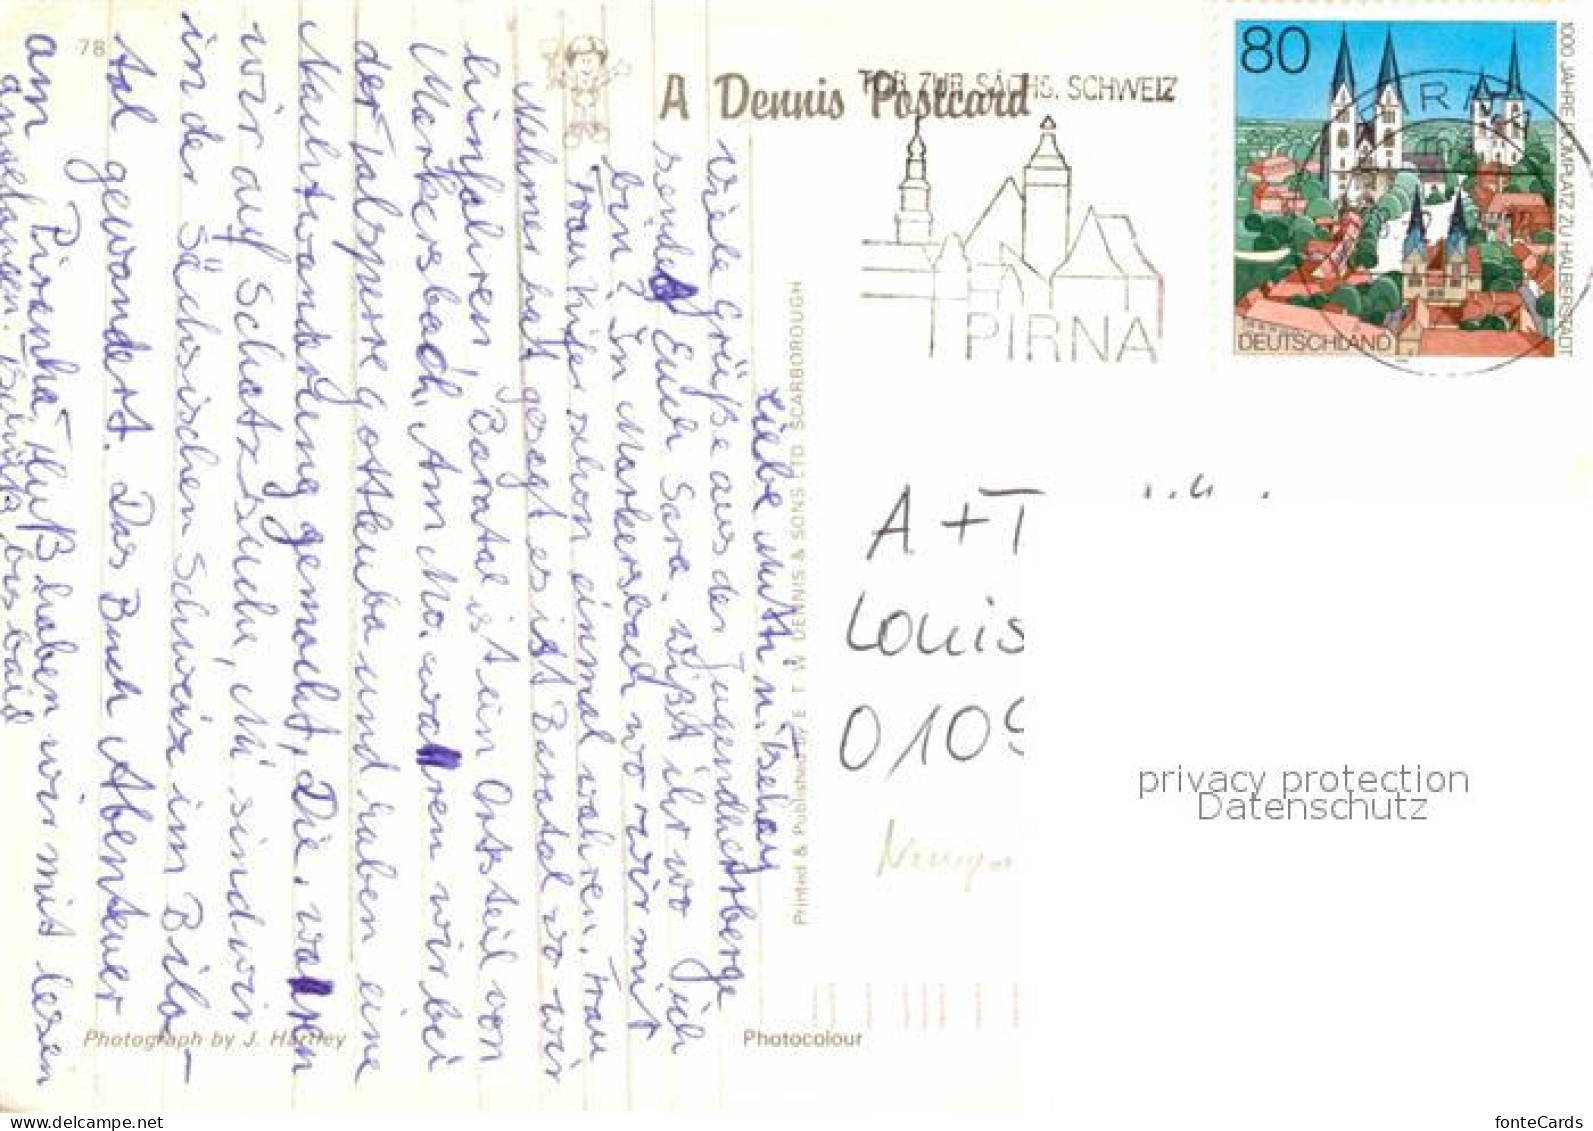 78
A Dennis Postcard
TOR ZUR SÄCHS. SCHWEIZ
PIRNA
80
1000 JAHRE DOMPLATZ ZU HALBERSTADT
DEUTSCHLAND
Liebe Mutti u.
Viele Grüße aus der Jugendherberge
sendet Euch Sara. Wißt ihr wo ich
bin? In Markersbach wo wir mit
Frau schon einmal wahren. Frau
Nehmer hat gesagt es ist Baratal wo wir
hinfahren, Baratal ist ein Ortsteil von
Markersbach. Am Mo. waren wir bei
der Talsperre gottleuba und haben eine
Nachtwanderung gemacht, Die. waren
wir auf Schatzsuche, Mi sind wir
in der Sächsischen Schweiz im Bila-
tal gewandert. Das Buch Abenteuer
am Pirenha Fluß haben wir mit lesen
angefangen. bis bald
Printed & Published by E. T. W. DENNIS & SONS LTD SCARBOROUGH
Photograph by J. Hartley
Photocolour
A + T
Louis
0109
privacy protection
Datenschutz
fonteCards